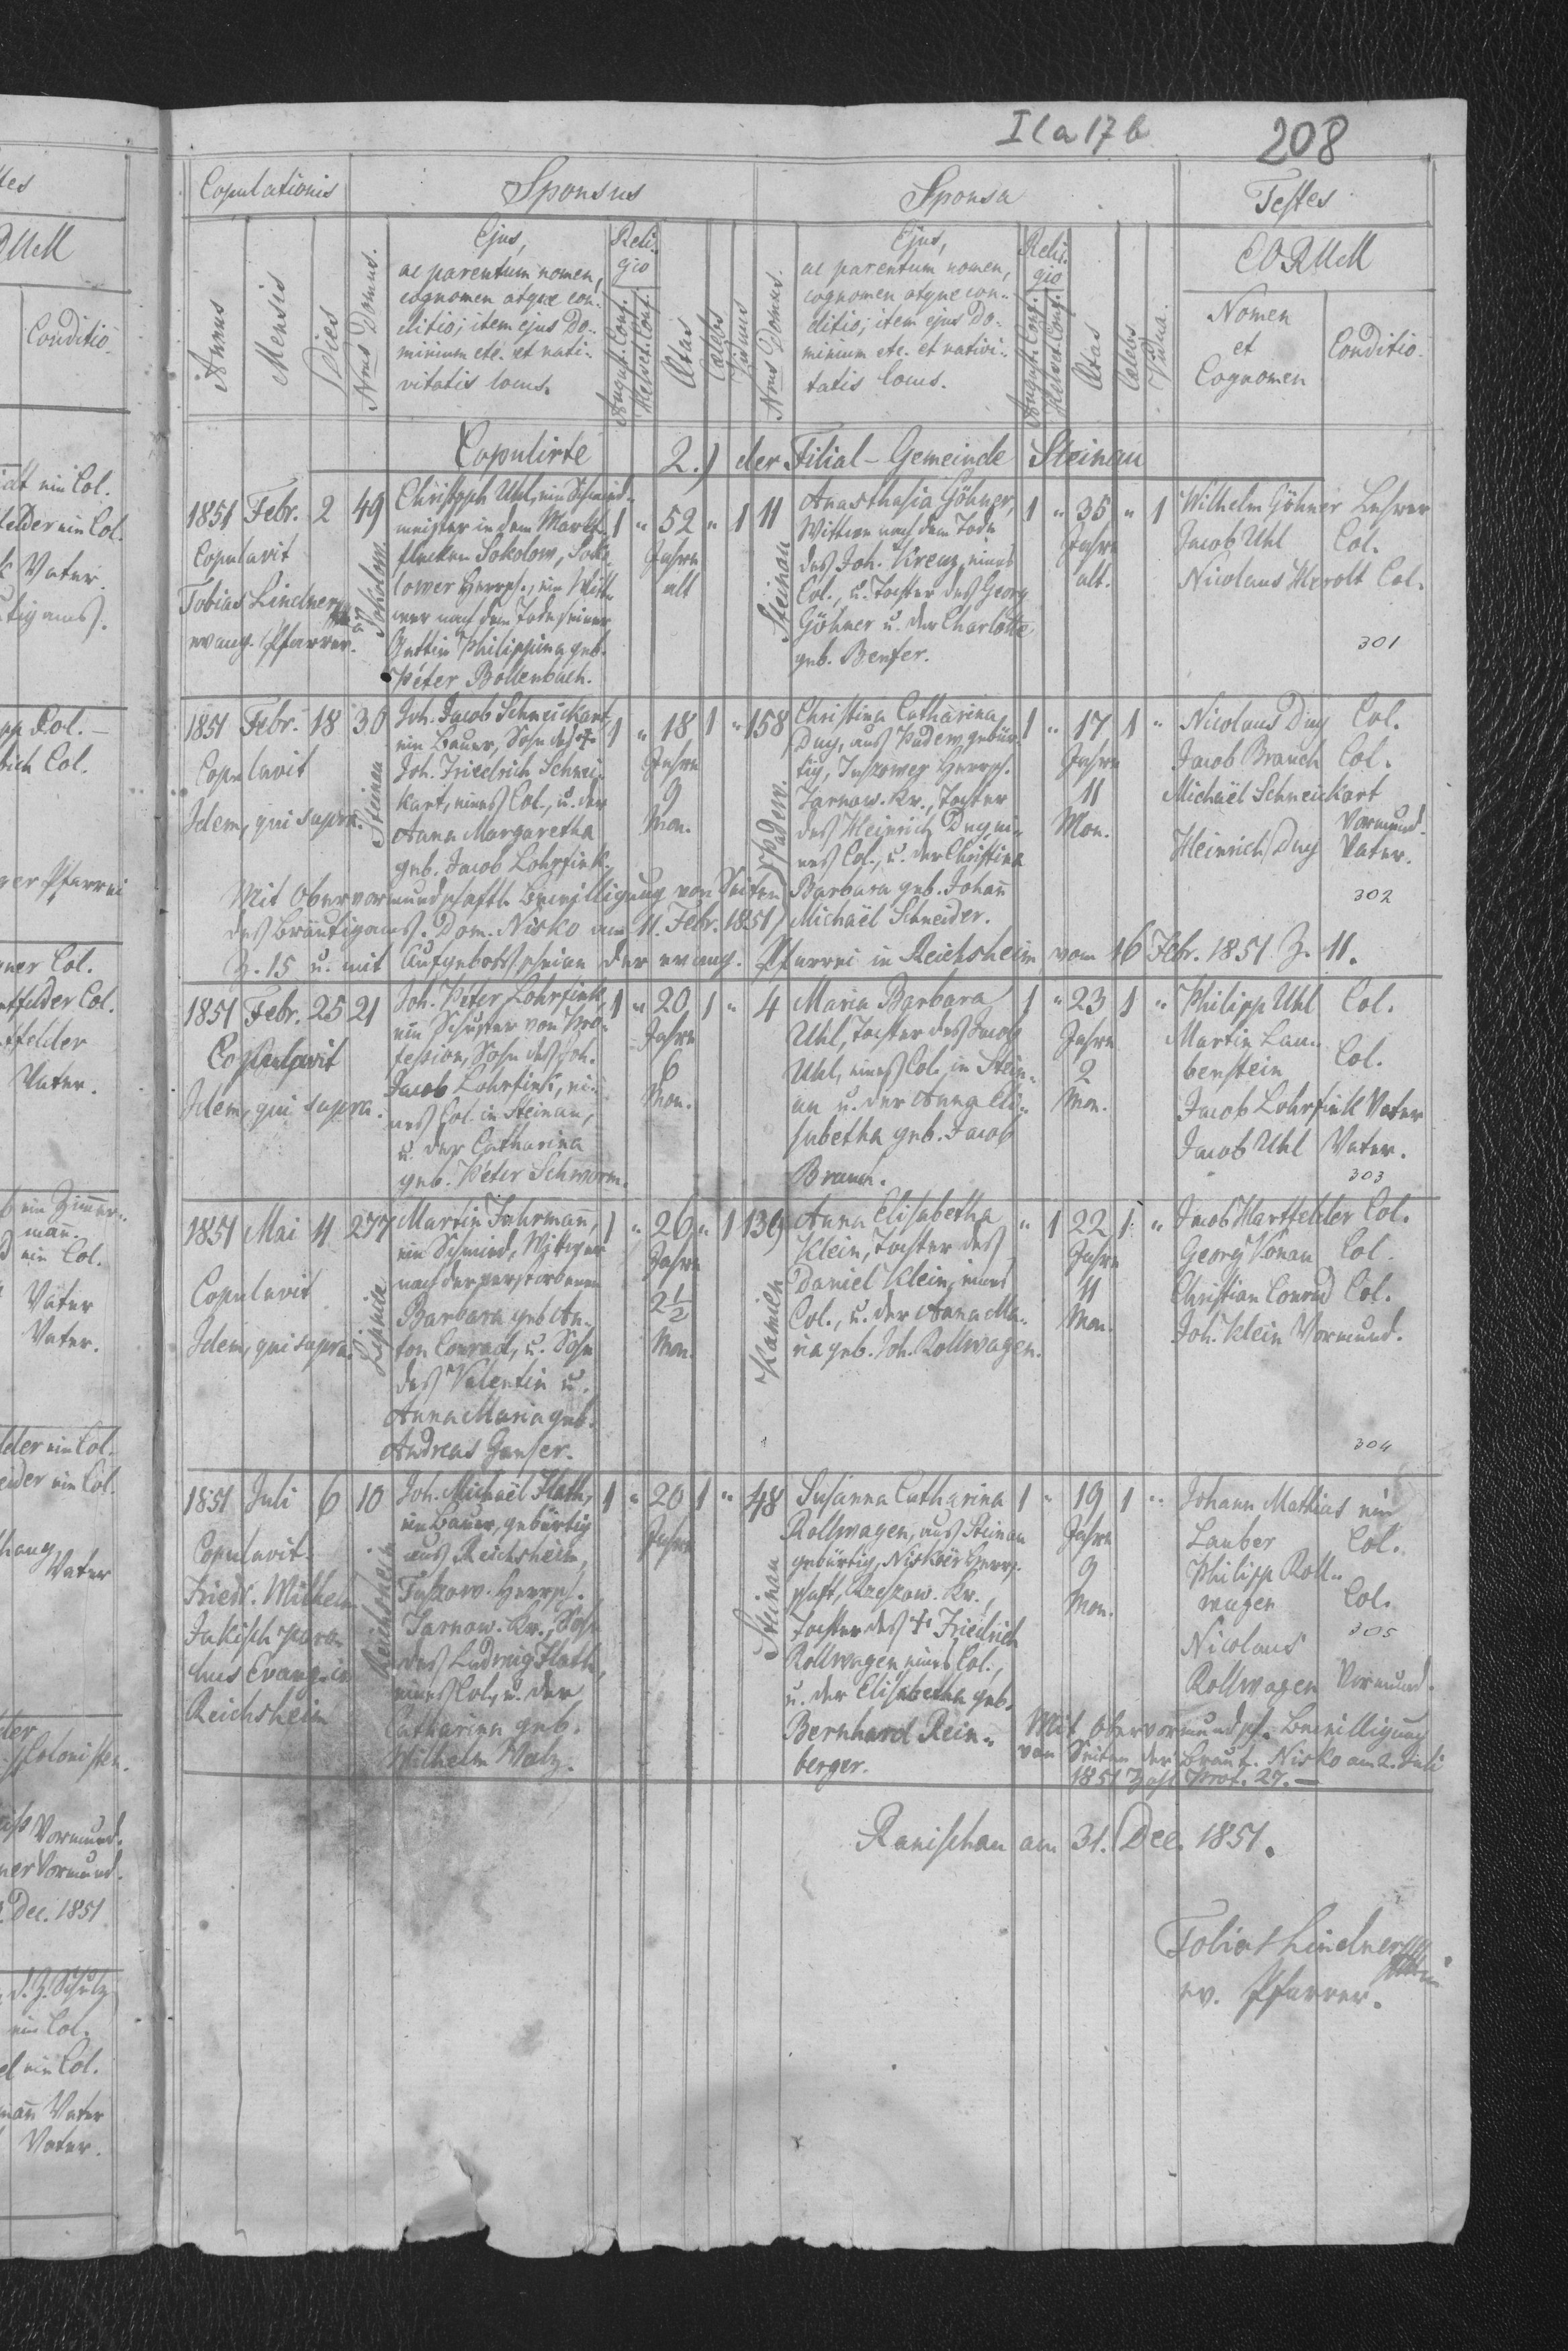 I(a 17 b
208
Copulationis
Sponsus
Sponsa
Testes
Annus
Mensis
Dies
Nrus Domus.
Ejus,
ac parentum nomen,
cognomen atque con-
ditio; item ejus Do-
minium etc. et nati-
vitatis locus.
Reli-
gio
August. Conf.
Helvet. Conf.
Ætas
Cælebs
Viduus
Nrus Domus.
Ejus,
ac parentum nomen,
cognomen atque con-
ditio; item ejus Do-
minium etc. et nativi-
tatis locus.
Reli-
gio
August. Conf.
Helvet. Conf.
Ætas
Cælebs
Vidua.
EORUM
Nomen
et
Cognomen
Conditio.
Copulirte 2.) der Filial-Gemeinde Steinau
1851 Febr. 2 49
Copulavit
Tobias Lindner
evang. Pfarrer.
Sokolow.
Christoph Uhl, ein Schmid-
meister in dem Markt-
flecken Sokolow, Soko-
lower Herrsch., ein Witt-
wer nach dem Tode seiner
Gattin Philippina geb.
Péter Bollenbach.
1 " 52 " 1
Jahre
alt
11
Steinau
Anasthasia Göhner,
Wittwe nach dem Tode
des Joh. Kreuz, eines
Col., u. Tochter des Georg
Göhner u. der Charlotte
geb. Benfer.
1 " 35 " 1
Jahre
alt.
Wilhelm Göhner Lehrer
Jacob Uhl Col.
Nicolaus Herolt Col.
301
1851 Febr. 18 30
Copulavit
Idem, qui supra.
Steinau
Joh. Jacob Schneickart,
ein Bauer, Sohn des †
Joh. Friedrich Schnei-
kart, eines Col., u. der
Anna Margaretha
geb. Jacob Lohrfink.
1 " 18 1 "
Jahre
9
Mon.
158
Padew.
Christina Catharina
Duy, aus Padew gebür-
tig, Tuszower Herrsch.
Tarnow. Kr., Tochter
des Heinrich Duy, ei-
nes Col., u. der Christina
Barbara geb. Johañ
Michaël Schneider.
1 " 17 1 "
Jahre
11
Mon.
Nicolaus Duy Col.
Jacob Brauch Col.
Michaël Schneickart
Vormund.
Heinrich Duy Vater.
302
Mit Obervormundschaftl. Bewilligung von Seiten
des Bräutigams. Dom. Nisko am 11. Febr. 1851
Z. 15 u. mit Aufgebotsschein der evang. Pfarrei in Reichsheim vom 16 Febr. 1851 Z. 11.
1851 Febr. 25 21
Copulavit
Idem, qui supra.
Joh. Péter Lohrfink,
ein Schuster von Pro-
fession, Sohn des Joh.
Jacob Lohrfink, ei-
nes Col. in Steinau,
u. der Catharina
geb. Péter Schworm.
1 " 20 1 "
Jahre
6
Mon.
4
Maria Barbara
Uhl, Tochter des Jacob
Uhl, eines Col. in Stein-
au u. der Anna Eli-
sabetha geb. Jacob
Braun.
1 " 23 1 "
Jahre
2
Mon.
Philipp Uhl Col.
Martin Lau-
benstein Col.
Jacob Lohrfink Vater
Jacob Uhl Vater.
303
1851 Mai 11 277
Copulavit
Idem, qui supra.
Martin Fuhrmañ,
ein Schmied, Wittwer
nach der verstorbenen
Barbara geb. An-
ton Conrad, u. Sohn
des Valentin u.
Anna Maria geb.
Andreas Ganser.
1 " 26 " 1
Jahre
2½
Mon.
136
Kamien
Anna Elisabetha
Klein, Tochter des
Daniel Klein, eines
Col., u. der Anna Ma-
ria geb. Joh. Rollwagen.
" 1 22 1 "
Jahre
11
Mon.
Jacob Hartfelder Col.
Georg Konan Col.
Christian Conrad Col.
Joh. Klein Vormund.
304
1851 Juli 6 10
Copulavit
Friedr. Wilhelm
Jakisch Paro-
chus Evang. in
Reichsheim
Reichsheim
Joh. Michaël Hath,
ein Bauer, gebürtig
aus Reichsheim,
Tuszow. Herrsch.
Tarnow. Kr., Sohn
des Ludwig Hath,
eines Col., u. der
Catharina geb.
Wilhelm Walz.
1 " 20 1 "
Jahre
48
Steinau
Susanna Catharina
Rollwagen, aus Steinau
gebürtig, Niskoër Herr-
schaft, Rzeszow. Kr.,
Tochter des † Friedrich
Rollwagen eines Col.,
u. der Elisabetha geb.
Bernhard Rein-
berger.
1 " 19 1 "
Jahre
9
Mon.
Johann Mathias ein
Lauber Col.
Philipp Roll-
wagen Col.
305
Nicolaus
Rollwagen Vormund.
Mit obervormundsch. Bewilligung
von Seiten der Braut. Nisko am 2. Juli
1851 Zahl Prot. 27. —
Ranischau am 31. Dec. 1851.
Tobias Lindner
ev. Pfarrer.